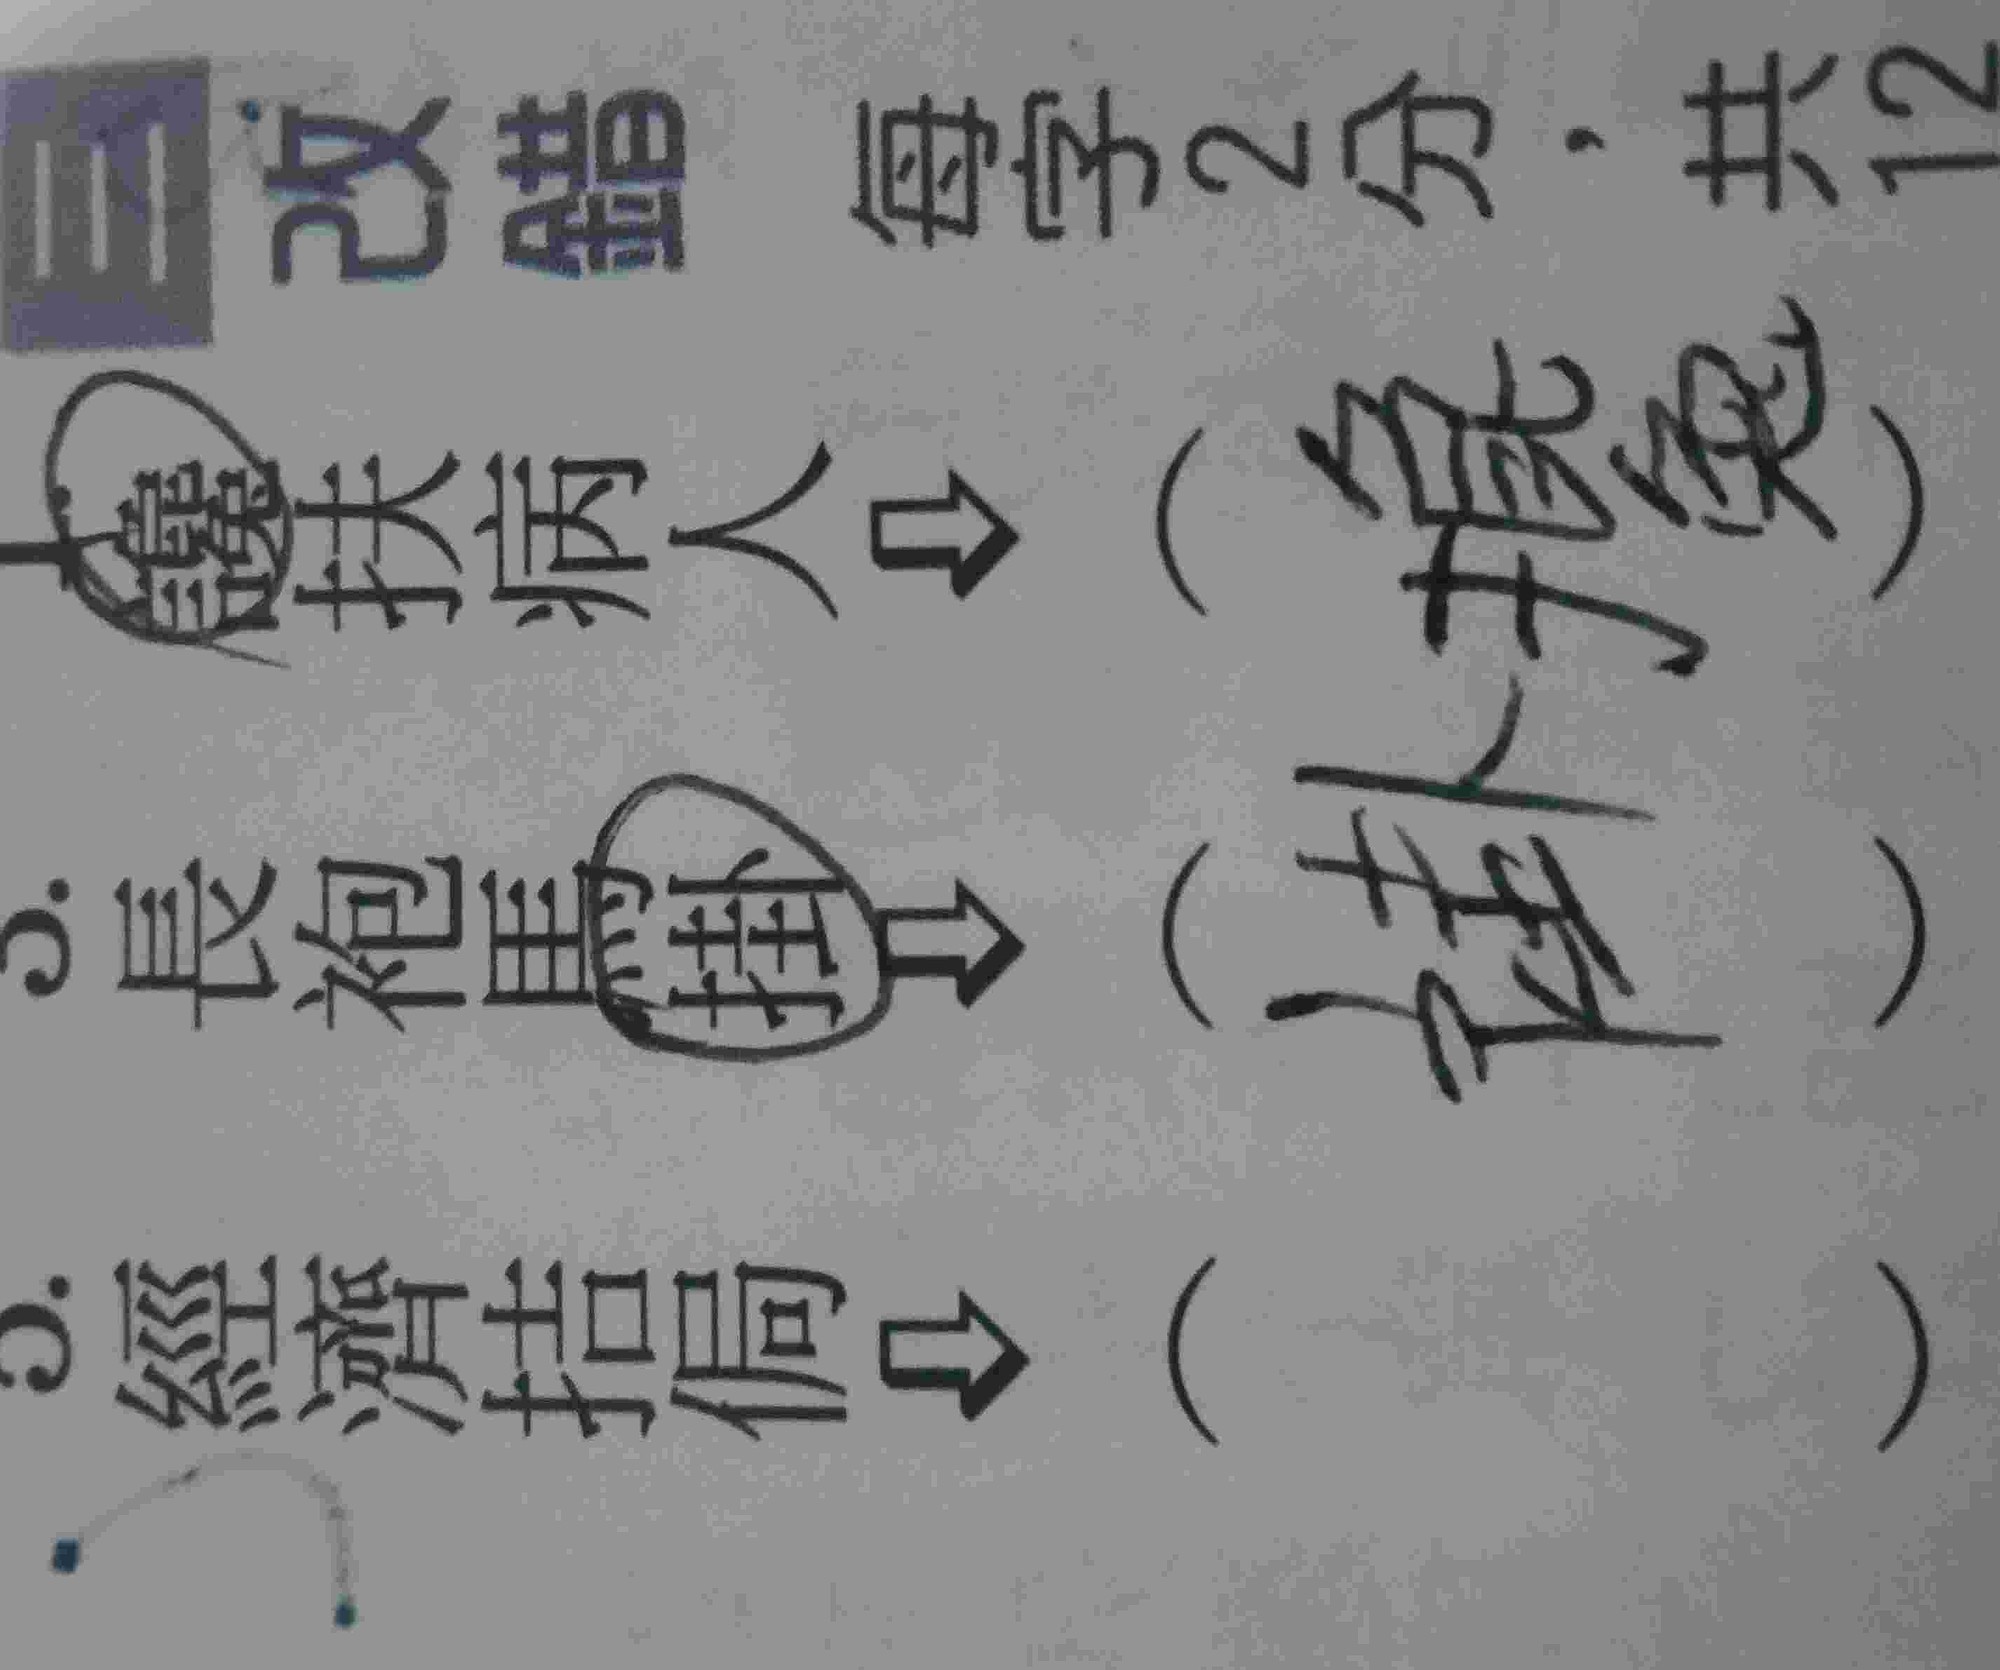 三 改錯 每字2分，共12
讒扶病人⇨(攙)
3. 長袍馬掛⇨(褂)
5. 經濟拮侷⇨( )